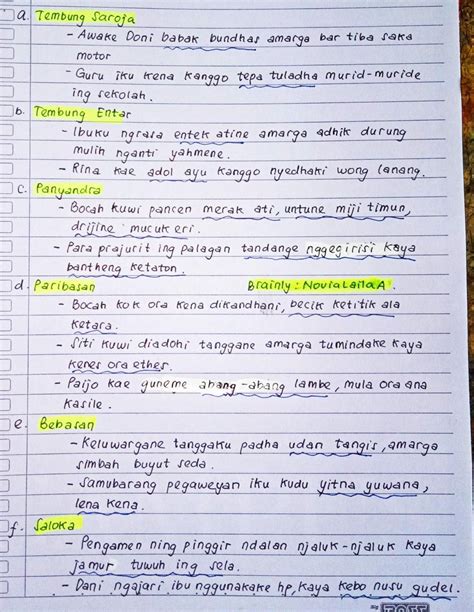 a. Tembung Saroja
- Awake Doni babak bundhas amarga bar tiba saka
motor
- Guru iku kena kanggo tepa tuladha murid-muride
ing sekolah.
b. Tembung Entar
- Ibuku ngrasa entek atine amarga adhik durung
mulih nganti yahmene.
- Rina kae adol ayu kanggo nyedhaki wong lanang.
c. Panyandra
- Bocah kuwi pancen merak ati, untune miji timun,
drijine mucuk eri.
- Para prajurit ing palagan tandange nggegirisi kaya
bantheng ketaton.
d. Paribasan Brainly : NoviaLailaA.
- Bocah kok ora kena dikandhani, becik ketitik ala
ketara.
- Siti kuwi diadohi tanggane amarga tumindake kaya
keres ora ethes.
- Paijo kae guneme abang-abang lambe, mula ora ana
kasile.
e. Bebasan
- Keluwargane tanggaku padha udan tangis, amarga
simbah buyut seda.
- Samubarang pegaweyan iku kudu yitna yuwana,
lena kena.
f. Saloka
- Pengamen ning pinggir ndalan njaluk-njaluk kaya
jamur tuwuh ing sela.
- Dani ngajari ibu nggunakake hp, kaya kebo nusu gudel.